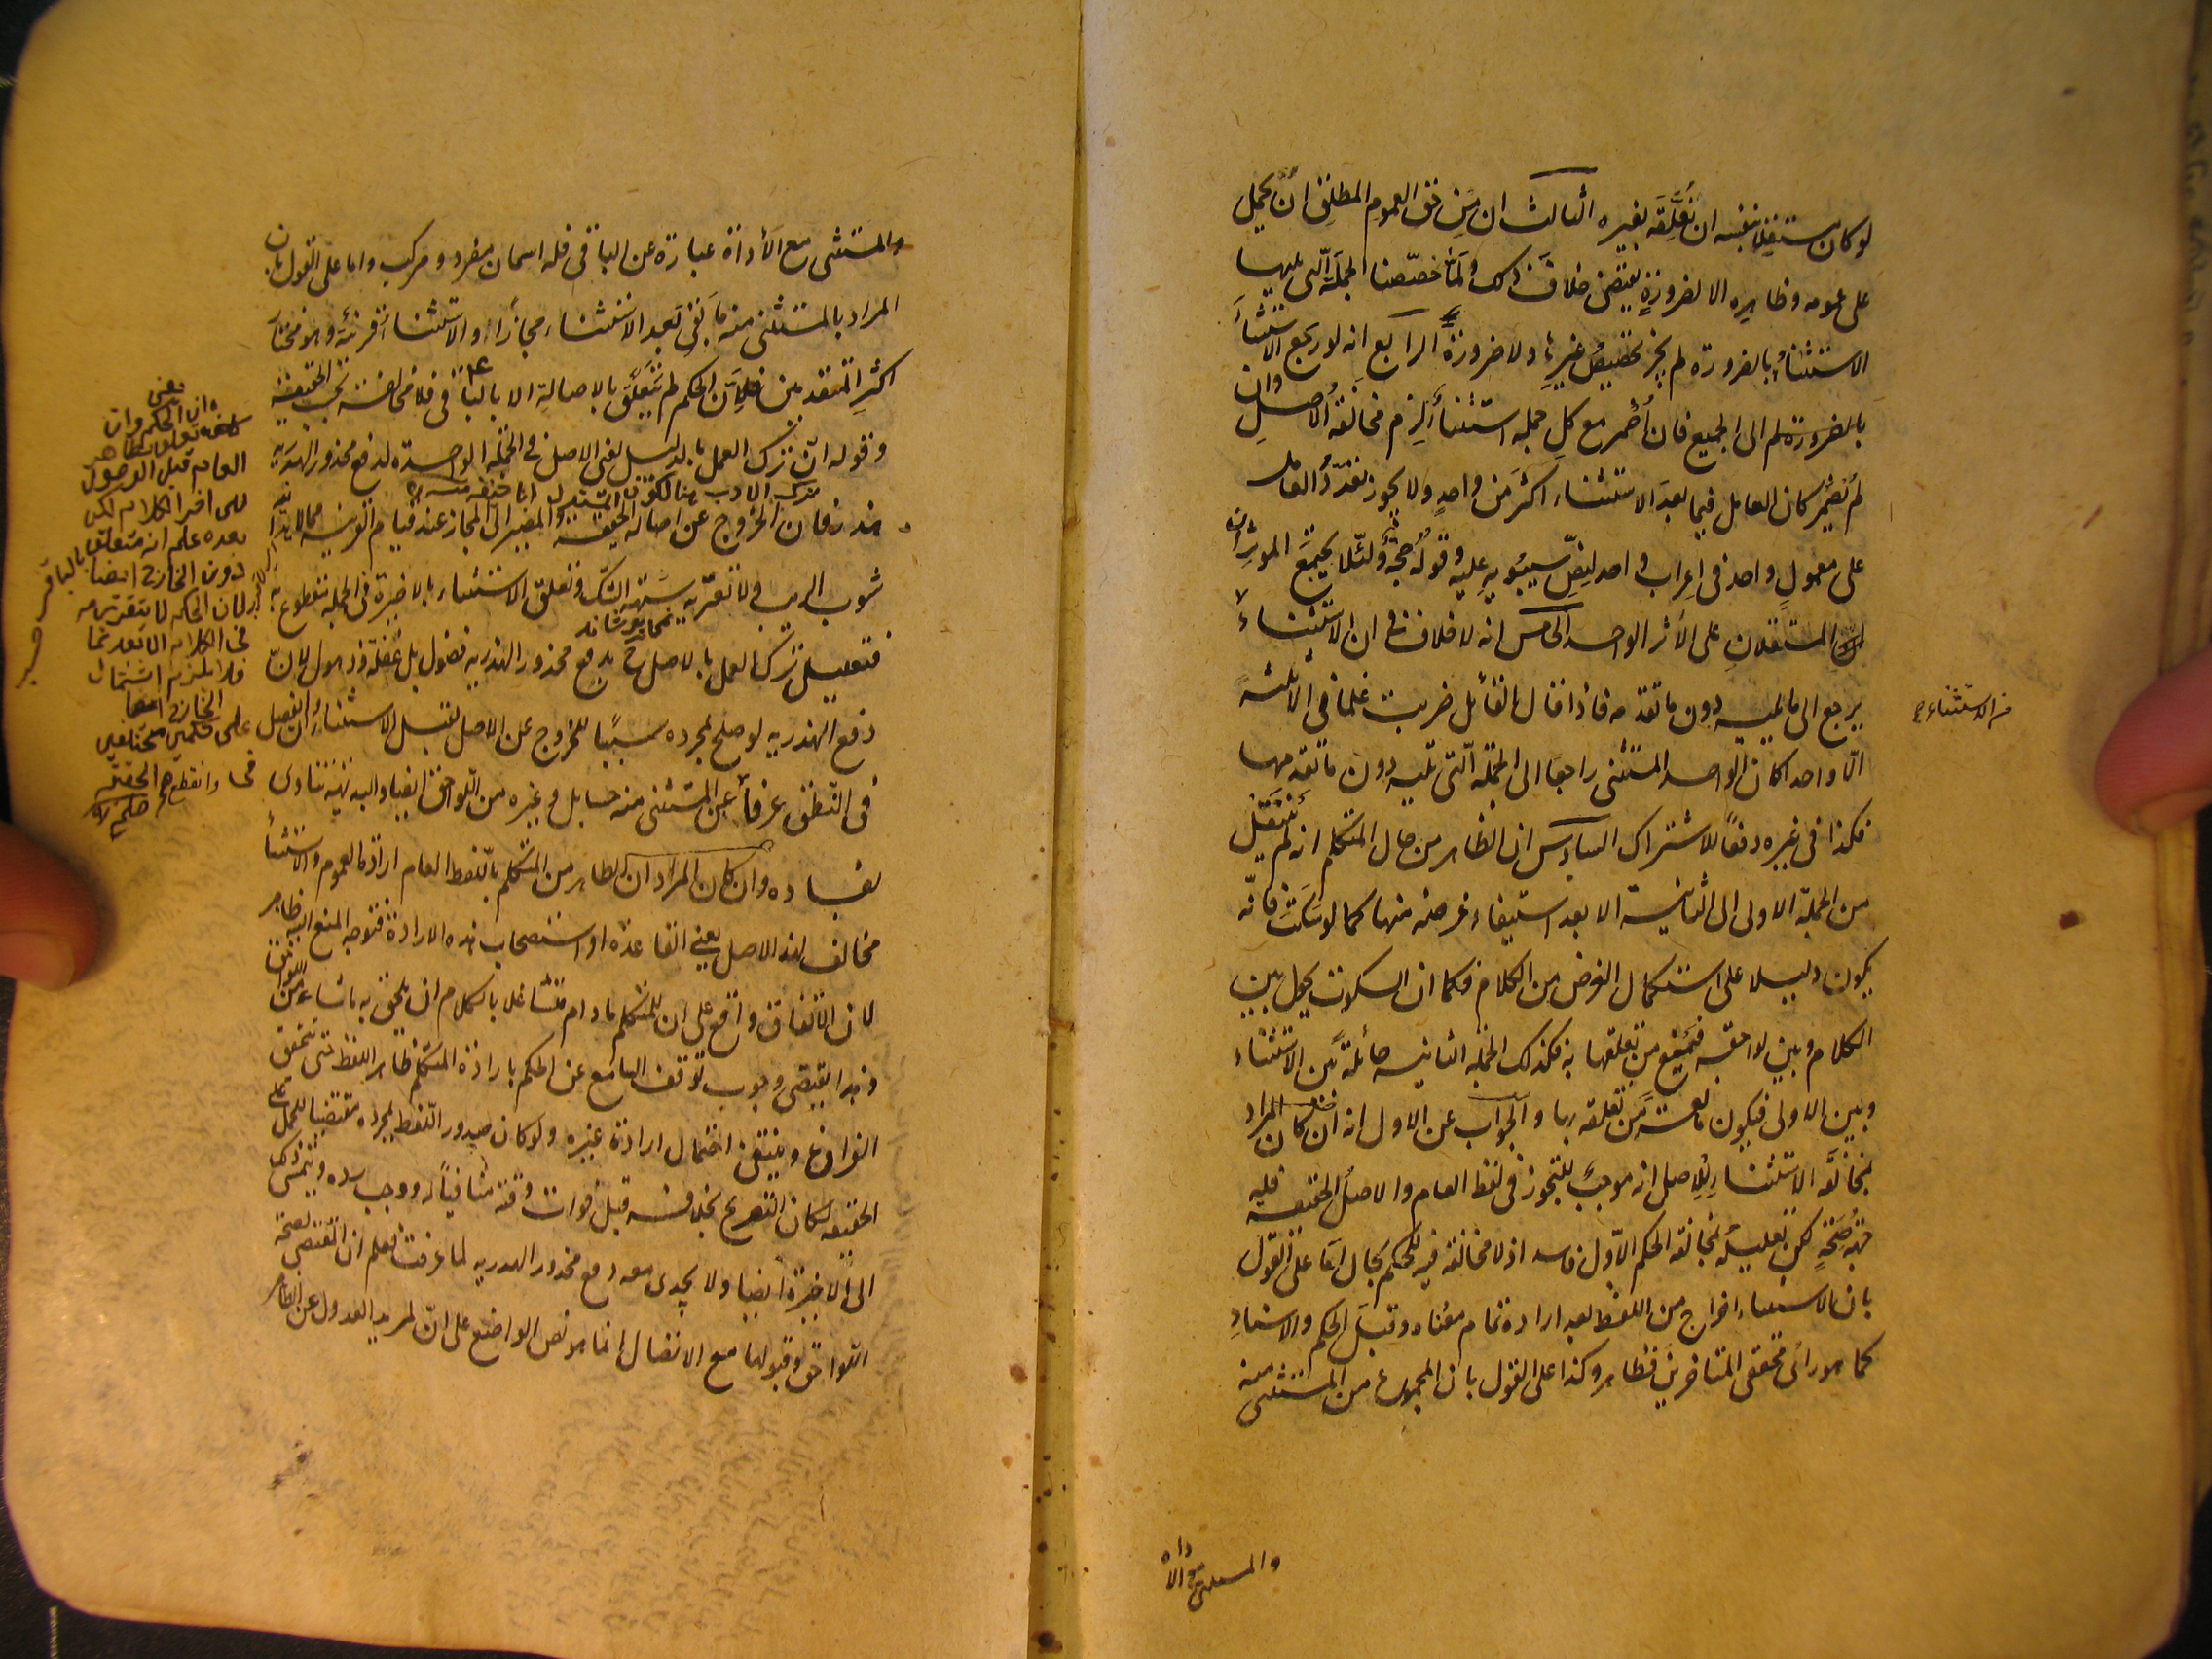 لو كان مستقلا بنفسه ان نعلقه بغيره الثالث ان من حق العموم المطلق ان يحمل
على عمومه وظاهره الا لضرورة يقتضى خلاف ذلك ولما خصّصنا الجملة التى يليها
الاستثناء بالضرورة لم يجز تخصيص غيرها ولا ضرورة الرابع انه لو رجع الاستثناء
بالضرورة لم الى الجميع فان أضمر مع كل جملة استثناء لزم مخالفة الاصل وان
لم يضمر كان العامل فيما بعد الاستثناء اكثر من واحد ولا يجوز تعدد العامل
على معمول واحد فى اعراب واحد لنصّ سيبويه عليه وقوله حجة ولئلا يجتمع المؤثران
المستقلان على الأثر الواحد الخامس انه لا خلاف فى ان الاستثناء
يرجع الى ما يليه دون ما تقدمه فاذا قال القائل ضربت غلمانى الا ثلثة
الا واحدا كان الواحد المستثنى راجعا الى الجملة التى تليه دون ما تقدمها
فكذا فى غيره دفعا للاشتراك السادس ان الظاهر من حال المتكلم انه لم ينتقل
من الجملة الاولى الى الثانية الا بعد استيفاء غرضه منها كما لو سكت فانه
يكون دليلا على استكمال الغرض من الكلام وكما ان السكوت يحول بين
الكلام وبين لواحقه فيمنع من تعلقها به فكذلك الجملة الثانية حائلة بين الاستثناء
وبين الاولى فيكون مانعة من تعلقه بها والجواب عن الاول انه ان كان المراد
بمخالفة الاستثناء للاصل انه موجب للتجوز فى لفظ العام والاصل الحقيقة فله
جهة صحة لكن تعليله بمخالفة الحكم الاول فاسد اذ لا مخالفة فيه للحكم بحال اما على القول
بان الاستثناء اخراج من اللفظ بعد ارادة تمام معناه وقبل الحكم والاسناد
كما هو رأى محققى المتأخرين فظاهر وكذا على القول بان المجموع من المستثنى منه
والمستثنى مع الأداة
والمستثنى مع الأداة عبارة عن الباقى فله اسمان مفرد ومركب واما على القول بان
المراد بالمستثنى منه ما بقى بعد الاستثناء مجازا والاستثناء قرينة وهو مختار
اكثر المتقدمين فلان الحكم لم يتعلق بالاصالة الا بالباقى فلا مخالفة بحسب الحقيقة
وقوله ان ترك العمل بالدليل يعنى الاصل فى الجملة الواحدة لدفع محذور الهذرية
هذر فان الخروج عن اصالة الحقيقة والمصير الى المجاز عند قيام القرينة مما لا يدانيه
شوب الريب ولا تعتريه شبهة الشك وتعلق الاستثناء بالاخيرة فى الجملة مقطوع به
فتعليل ترك العمل بالاصل ح بدفع محذور الهذرية فضول بل غفلة وذهول لان
دفع الهذرية لو صلح بمجرده سببا للخروج عن الاصل لقبل الاستثناء وان انفصل
فى النطق عرفا عن المستثنى منه بل وغيره من اللواحق ايضا والبديهة تنادى
بفساده وان كان المراد ان الظاهر من المتكلم باللفظ العام ارادة العموم والاستثناء
مخالف لهذا الاصل يعنى القاعدة او استصحاب هذه الارادة فتوجه المنع اليه ظاهر
لان الاتفاق واقع على ان للمتكلم ما دام متشاغلا بالكلام ان يلحق به ما شاء من اللواحق
وهذا يقتضى وجوب توقف السامع عن الحكم بارادة المتكلم ظاهر اللفظ حتى يتحقق
الفراغ وينتفى احتمال ارادة غيره ولو كان صدور اللفظ بمجرده مقتضيا للحمل على
الحقيقة لكان التصريح بخلافه قبل فوات وقته منافيا له ووجب رده ويتمشى ذلك
الى الاخيرة ايضا ولا يجدى معه دفع محذور الهذرية لما عرفت فعلم ان المقتضى لصحة
اللواحق وقبولها مع الاتصال انما هو نص الواضع على ان لمريد العدول عن الظاهر
يعنى
العام قبل الوصول
الى اخر الكلام لكن
بعده علم انه متعلق